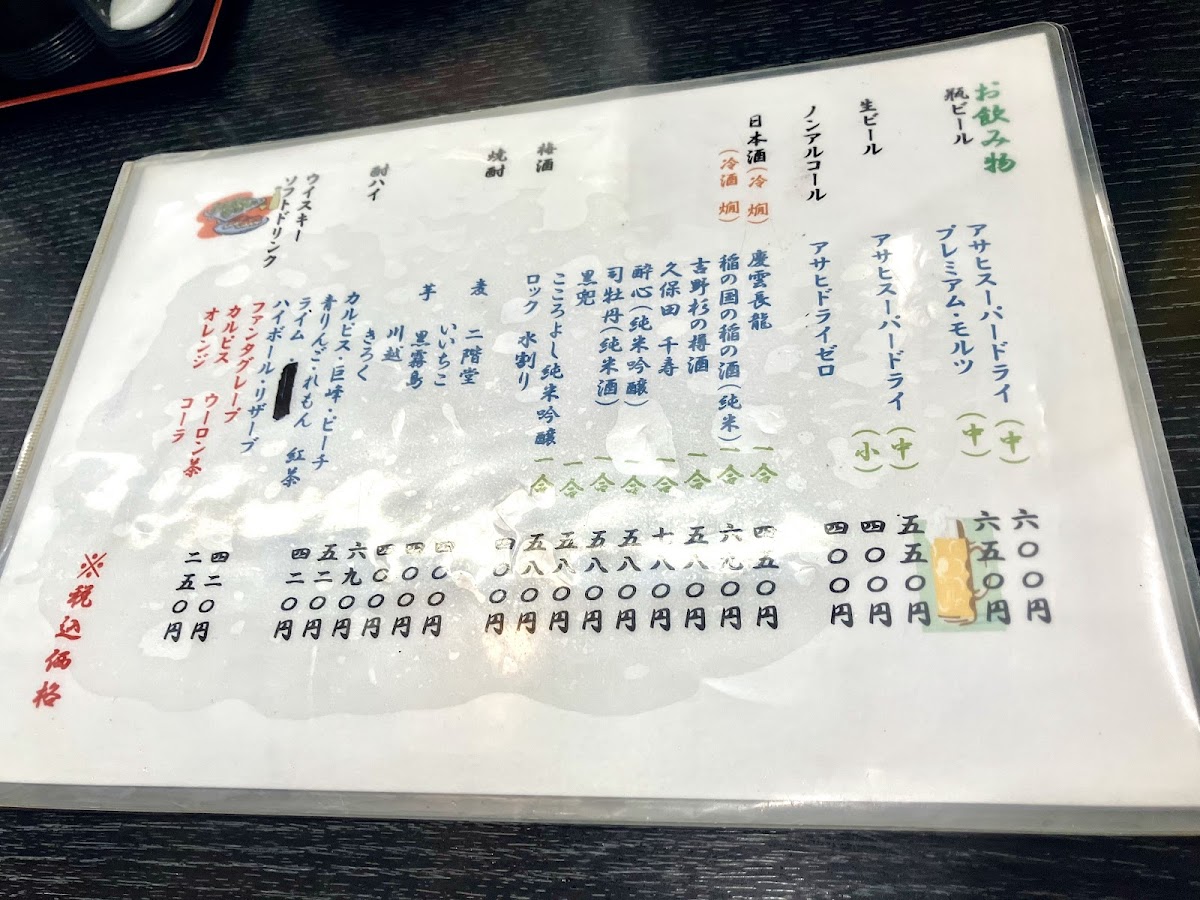 お飲み物
瓶ビール
アサヒスーパードライ (中) 六〇〇円
プレミアム・モルツ (中) 六五〇円
生ビール
アサヒスーパードライ (中) 五五〇円
(小) 四〇〇円
ノンアルコール
アサヒドライゼロ 四〇〇円
日本酒(冷 燗)
(冷酒 燗)
慶雲長龍 一合 四五〇円
稲の国の稲の酒(純米) 一合 六九〇円
吉野杉の樽酒 一合 五八〇円
久保田 千寿 一合 八〇円
酔心(純米吟醸) 一合 五八〇円
司牡丹(純米酒) 一合 五八〇円
黒兜 一合 五八〇円
こころよし純米吟醸 一合 五八〇円
梅酒
ロック 水割り 四〇〇円
焼酎
麦 二階堂 四〇〇円
いいちこ 四〇〇円
芋 黒霧島 四〇〇円
川越 六九〇円
きろく 五二〇円
酎ハイ
カルピス・巨峰・ピーチ 四二〇円
青りんご・れもん 紅茶
ライム
ウイスキー
ハイボール・リザーブ 四二〇円
ソフトドリンク
ファンタグレープ 二五〇円
カルピス ウーロン茶
オレンジ コーラ
※税込価格